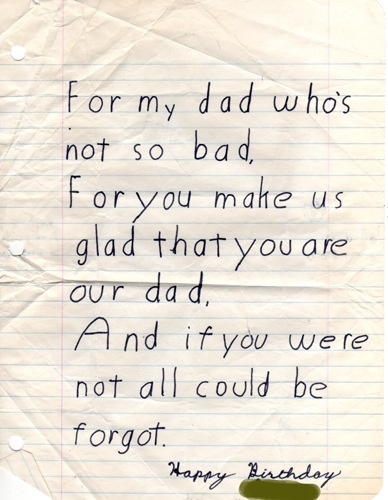 For my dad who's
not so bad,
For you make us
glad that you are
our dad,
And if you were
not all could be
forgot.
Happy Birthday